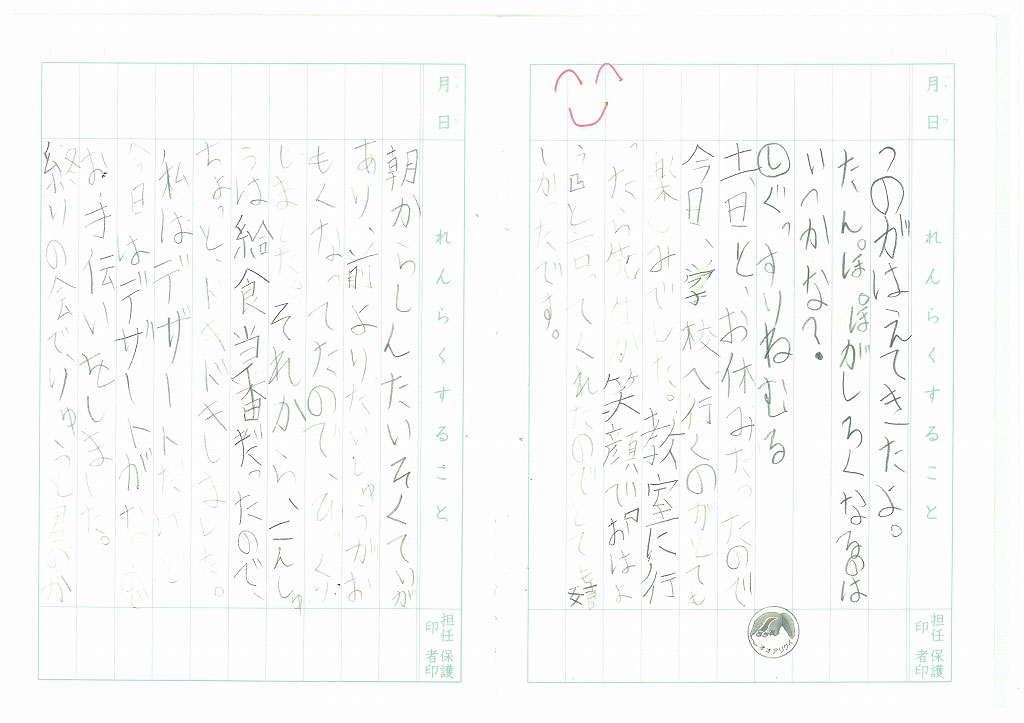 月 日 れんらくすること 担任印 保護者印
つのがはえてきたよ。
たん。ぽ。ぽがしろくなるのは
いつかな?
しぐっすりねむる
土、日と、お休みだったので
今日、学校へ行くのがとても
楽しみでした。教室に行
ったら先生が笑顔で「おはよ
う」と言ってくれたのでとても嬉
しかったです。
オオアリクイ
月 日 れんらくすること 担任印 保護者印
朝からしんたいそくていが
あり、前よりたいじゅうがお
もくなってたので、びっくり
しました。それから、こんしゅ
うは給食当番だったので、
ちょっと、ドキドキしました。
私はデザートだけど
今日はデザートがないので
お手伝いをしました。
終りの会で、りゅうと君のか